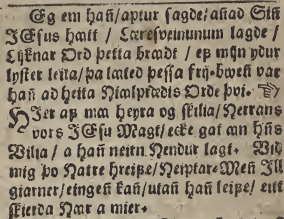 Eg em hañ/aptur sagde/añad Siñ
JEsus hætt / Læresveinunum lagde /
Lijknar Ord þetta brædt / ep mijn ydur
lyster leita/þa lated þessa frij-
hañ ad heita Niælprædis Orde þvi.
HIer ap mæ heyra og skilia/Herrans
vors JEsu Magt/ecke gat añ hñs
Vilia / a hañ neirn Hendur lagt. Vid
mig þo Natre hreiþe/Neiptar-Meñ Ill
giarner/eingeñ kañ/utañ hañ leiþe/ eitt
skierda Hær a mier.